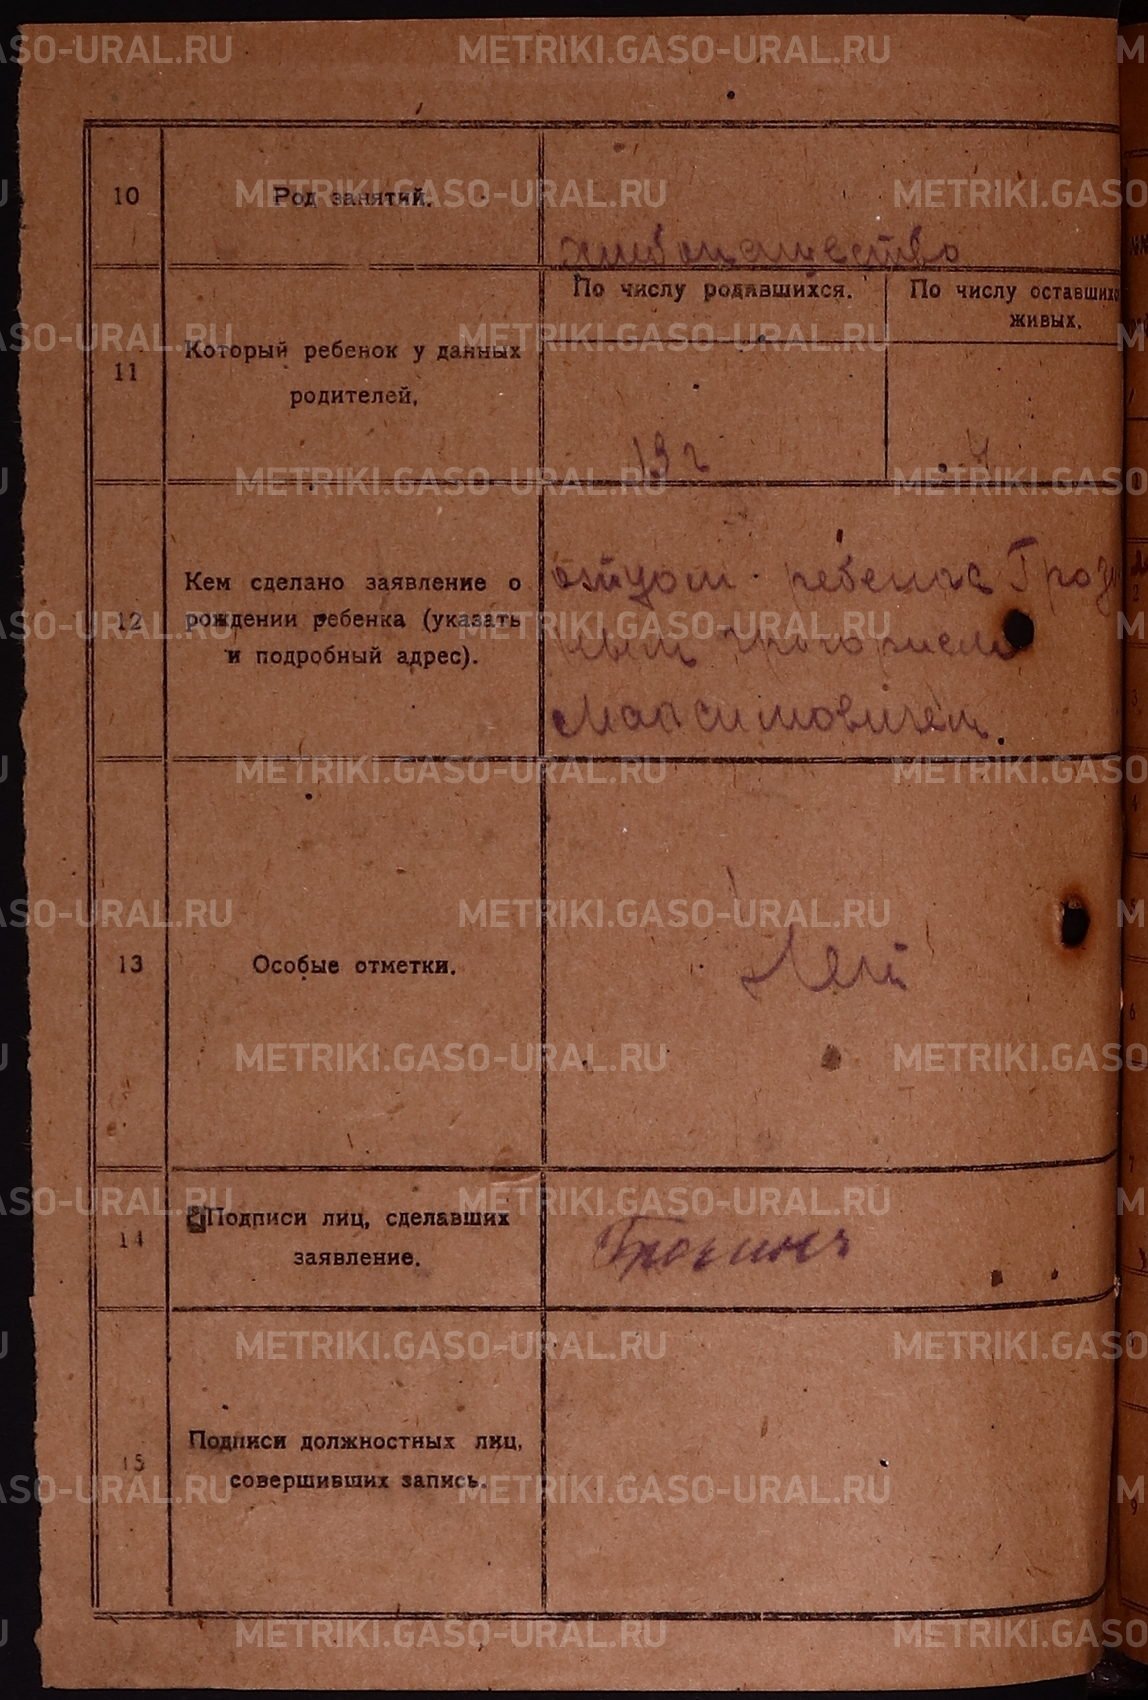 METRIKI.GASO-URAL.RU
10
Род занятий.
хлебопашество
11
Который ребенок у данных
родителей.
По числу родившихся.
По числу оставшихс
живых.
13
4
12
Кем сделано заявление о
рождении ребенка (указать
и подробный адрес).
отцом ребенка Гроз
ным
Максимовичем.
13
Особые отметки.
Нет
14
Подписи лиц, сделавших
заявление.
15
Подписи должностных лиц,
совершивших запись.